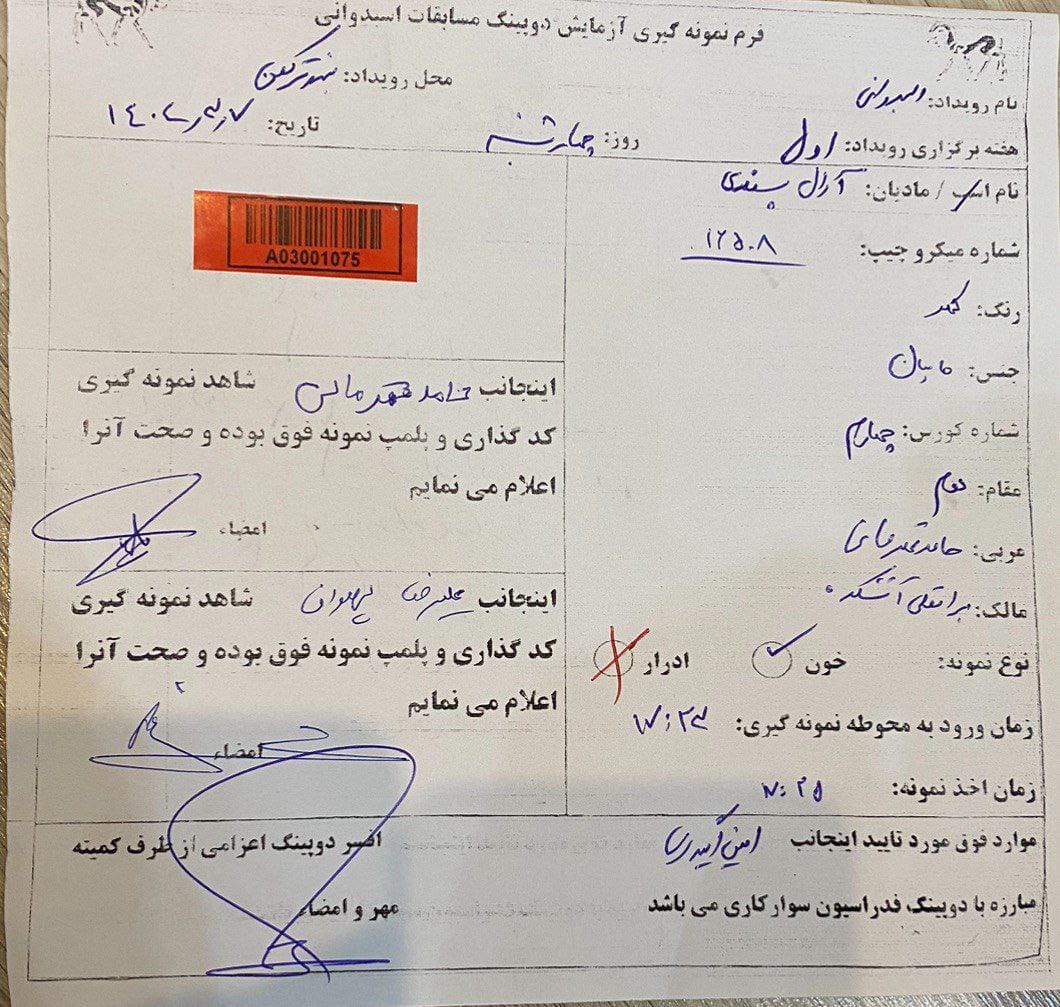 فرم نمونه گیری آزمایش دوپینگ مسابقات اسبدوانی
نام رویداد: اسبدوانی
محل رویداد: بندرترکمن
هفته برگزاری رویداد: اول
روز: چهارشنبه
تاریخ:
نام اسب / مادیان: آرال پسندی
شماره میکرو چیپ: ۱۲۵۰۸
رنگ: کهر
جنس: مادیان
شماره کورس: چهارم
مقام: دوم
مربی: حامد
مالک: آتشکده
نوع نمونه: خون ادرار
زمان ورود به محوطه نمونه گیری: ۱۷:۲۳
زمان اخذ نمونه: ۱۷:۲۵
A03001075
اینجانب حامد شاهد نمونه گیری
کد گذاری و پلمپ نمونه فوق بوده و صحت آنرا
اعلام می نمایم
امضاء
اینجانب علیرضا پهلوان شاهد نمونه گیری
کد گذاری و پلمپ نمونه فوق بوده و صحت آنرا
اعلام می نمایم
امضاء
موارد فوق مورد تایید اینجانب امین افسر دوپینگ اعزامی از طرف کمیته
مبارزه با دوپینگ فدراسیون سوارکاری می باشد
مهر و امضاء